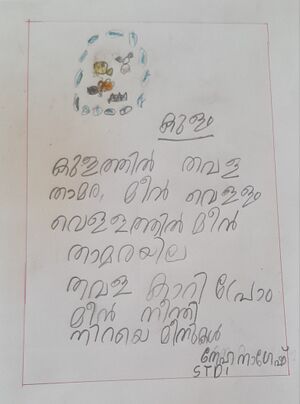 കുളം
കുളത്തിൽ തവള
താമര, മീൻ വെള്ളം
വെള്ളത്തിൽ മീൻ
താമരയില
തവള കാറി പ്രോം
മീൻ നീന്തി
നിറയെ മീനുകൾ
സ്നേഹ നാഗേഷ്
STD 1